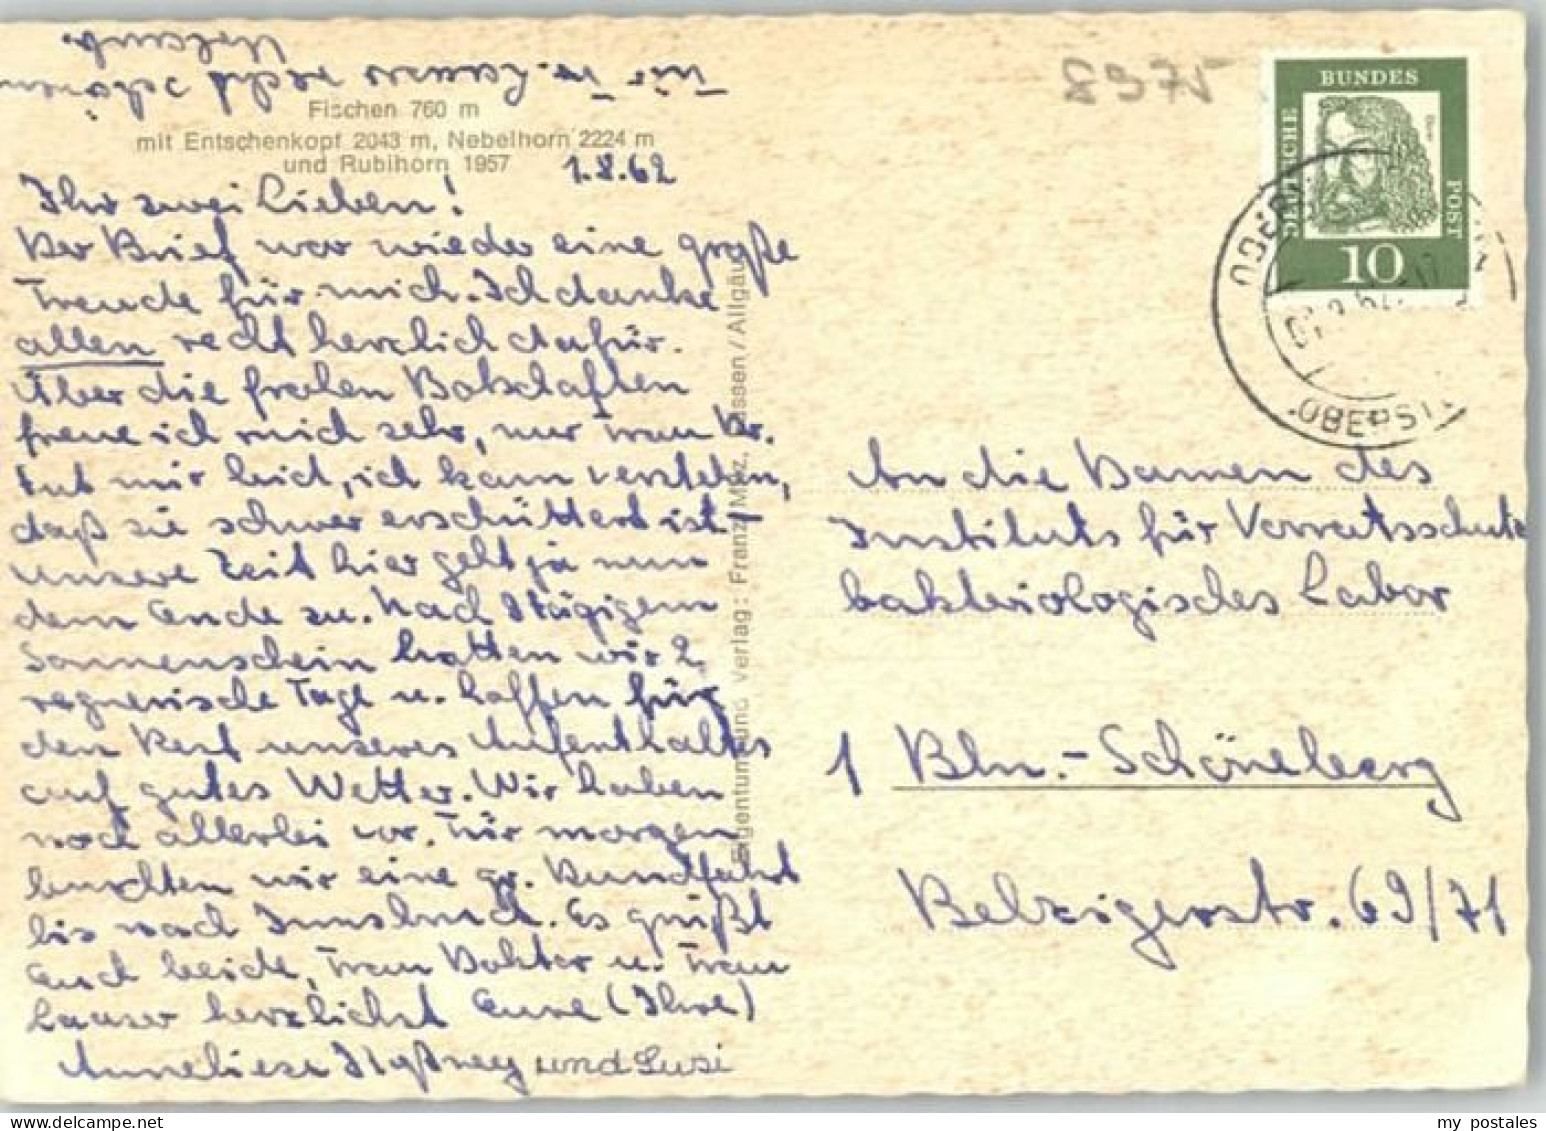 Für Fr. Lauser recht schönen
Urlaub.
8975
Fischen 760 m
mit Entschenkopf 2043 m, Nebelhorn 2224 m
und Rubihorn 1957
1.8.62
Ihr zwei Lieben!
Der Brief war wieder eine große
Freude für mich. Ich danke
allen recht herzlich dafür.
Über die frohen Botschaften
freue ich mich sehr, nur Frau
tut mir leid, ich kann verstehen,
daß sie schwer erschüttert ist.
Unsere Zeit hier geht ja nun
dem Ende zu. Nach
Sonnenschein hatten wir 2
regnerische Tage u. hoffen für
den Rest unseres Aufenthaltes
auf gutes Wetter. Wir haben
noch allerlei vor. Für morgen
buchten wir eine gr. Rundfahrt
bis nach Innsbruck. Es grüßt
Euch beide, Frau Doktor u. Frau
Lauser herzlichst Eure (Ihre)
Anneliese und Susi
Eigentum und Verlag: Franz Füssen/Allgäu
DEUTSCHE
BUNDES
POST
10
OBERST
An die Damen des
Instituts für Vorratsschutz
bakteriologisches Labor
1 Bln.-Schöneberg
Belzigerstr. 69/71
my postales